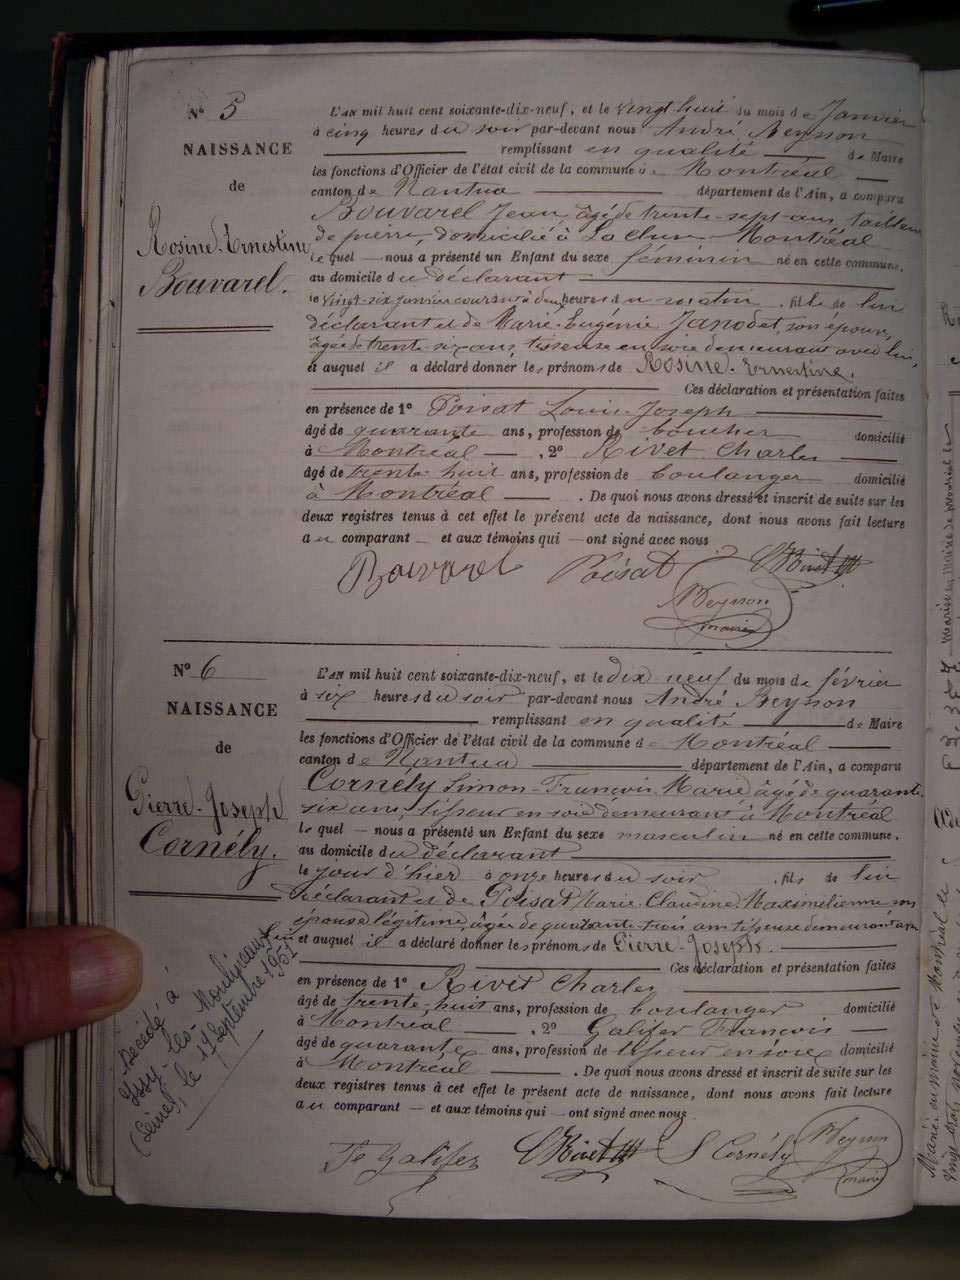 N° 5
NAISSANCE
de
Rosine-Ernestine
Bouvarel.
L'AN mil huit cent soixante-dix-neuf, et le vingt huit du mois de Janvier
à cinq heures du soir par-devant nous André Beysson
remplissant en qualité de Maire
les fonctions d'Officier de l'état civil de la commune de Montréal
canton de Nantua département de l'Ain, a comparu
Bouvarel Jean, âgé de trente-sept ans, tailleur
de pierre, domicilié à La Cluse Montréal
lequel nous a présenté un Enfant du sexe féminin né en cette commune,
au domicile du déclarant
le vingt-six janvier courant à deux heures du matin. fille de lui
déclarant et de Marie-Eugénie Janodet, son épouse,
âgée de trente-six ans, tisseuse en soie demeurant avec lui,
et auquel il a déclaré donner les prénoms de Rosine-Ernestine.
Ces déclaration et présentation faites
en présence de 1° Poisat Louis-Joseph
âgé de quarante ans, profession de boucher domicilié
à Montréal, 2° Rivet Charles
âgé de trente-huit ans, profession de boulanger domicilié
à Montréal. De quoi nous avons dressé et inscrit de suite sur les
deux registres tenus à cet effet le présent acte de naissance, dont nous avons fait lecture
au comparant et aux témoins qui ont signé avec nous
Bouvarel Poisat C Rivet
Beysson
maire
N° 6
NAISSANCE
de
Pierre-Joseph
Cornély.
L'AN mil huit cent soixante-dix-neuf, et le dix neuf du mois de février
à six heures du soir par-devant nous André Beysson
remplissant en qualité de Maire
les fonctions d'Officier de l'état civil de la commune de Montréal
canton de Nantua département de l'Ain, a comparu
Cornély Simon-François-Marie âgé de quarante-
six ans, tisseur en soie demeurant à Montréal
lequel nous a présenté un Enfant du sexe masculin né en cette commune,
au domicile du déclarant
le jour d'hier à onze heures du soir. fils de lui
déclarant et de Poisat Marie-Claudine-Maximilienne son
épouse légitime, âgée de quarante-trois ans tisseuse demeurant avec
lui et auquel il a déclaré donner les prénoms de Pierre-Joseph.
Ces déclaration et présentation faites
en présence de 1° Rivet Charles
âgé de trente-huit ans, profession de boulanger domicilié
à Montréal, 2° Galifer François
âgé de quarante ans, profession de tisseur en soie domicilié
à Montréal. De quoi nous avons dressé et inscrit de suite sur les
deux registres tenus à cet effet le présent acte de naissance, dont nous avons fait lecture
au comparant et aux témoins qui ont signé avec nous
Galifer C Rivet S Cornély Beysson
maire
Décédé à
Issy-les-Moulineaux
(Seine), le 19 Septembre 1951